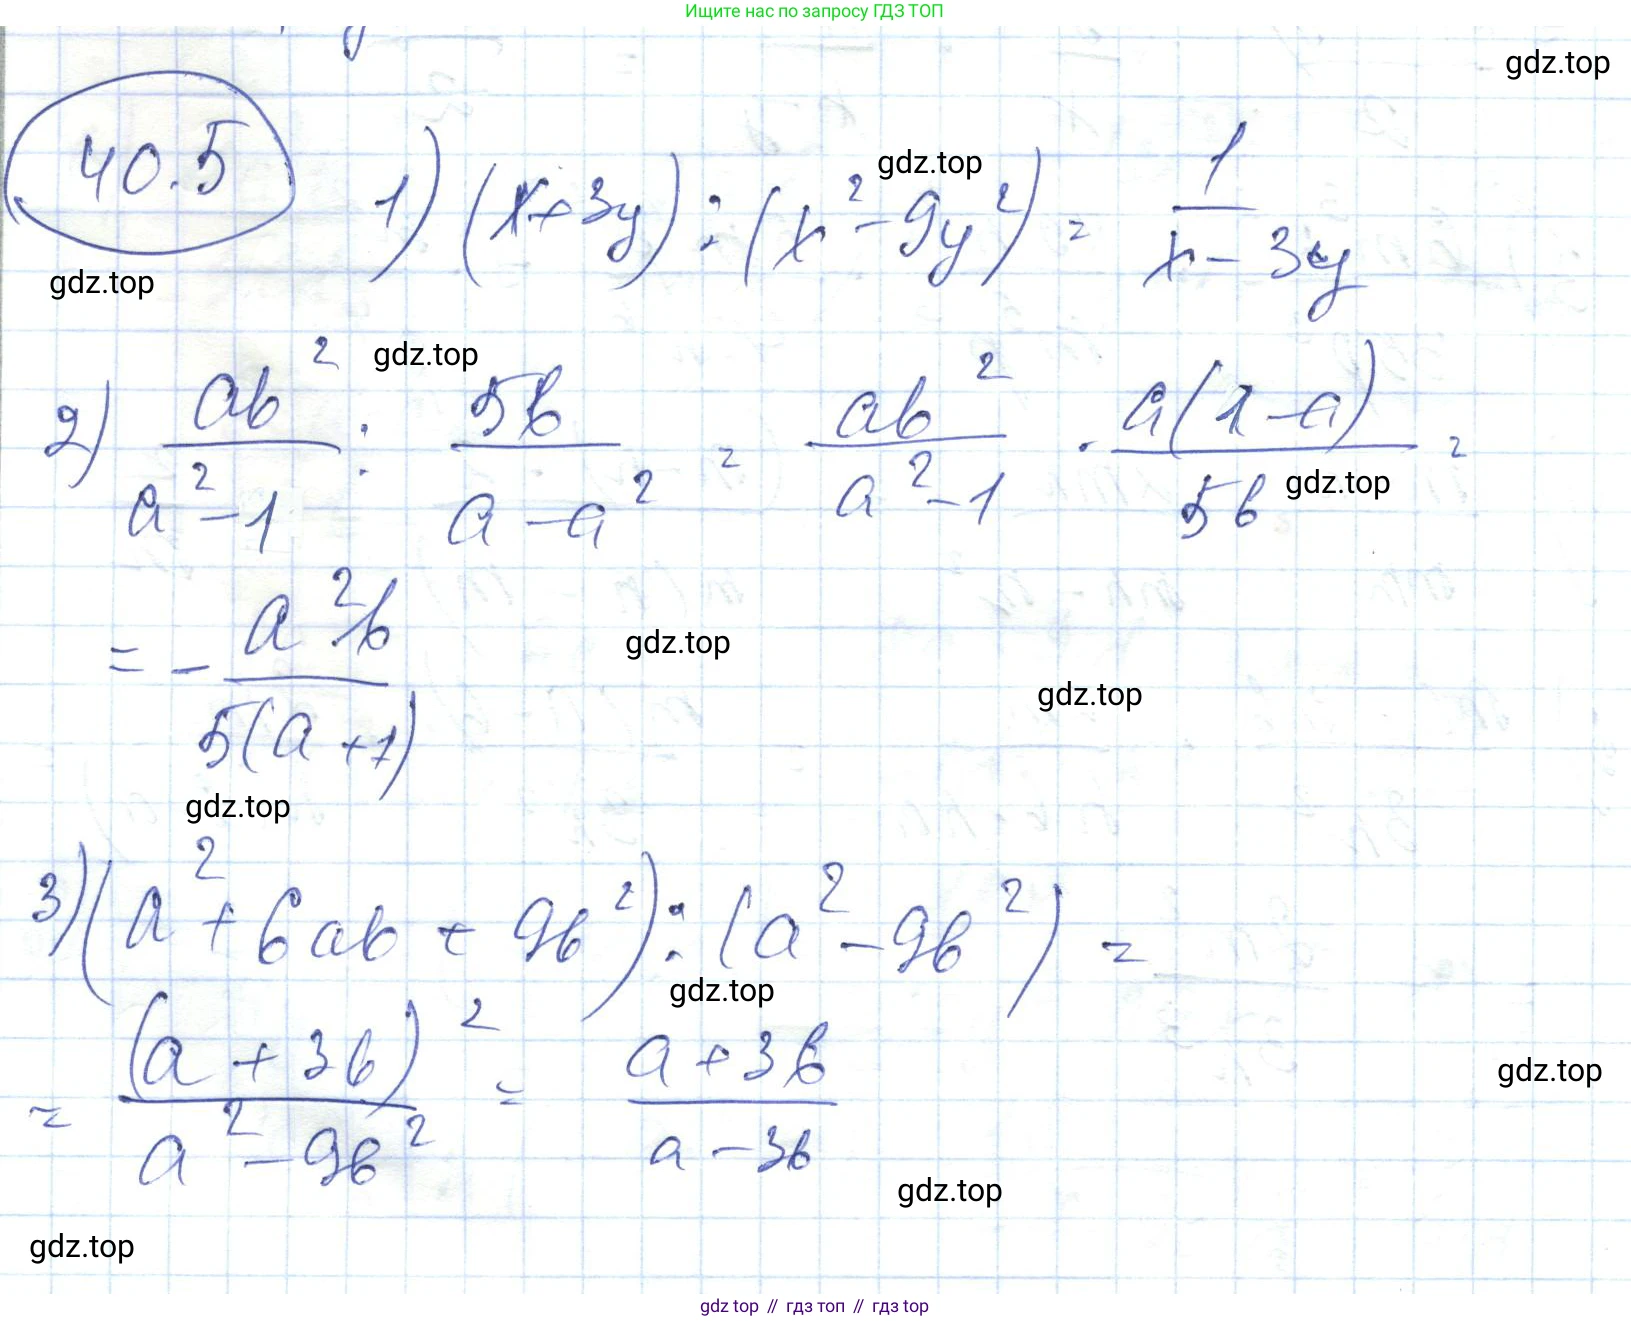 Ищите нас по запросу ГДЗ ТОП
gdz.top
40.5
1) (x+3y) : (x² - 9y²) = 1/(x - 3y)
gdz.top
gdz.top
gdz.top
2) ab²/(a² - 1) : 5b/(a - a²) = ab²/(a² - 1) · a(1 - a)/5b =
gdz.top
= - a²b/5(a + 1)
gdz.top
gdz.top
gdz.top
3) (a² + 6ab + 9b²) : (a² - 9b²) =
gdz.top
= (a + 3b)²/(a² - 9b²) = (a + 3b)/(a - 3b)
gdz.top
gdz.top
gdz.top
gdz.top // гдз топ // гдз top